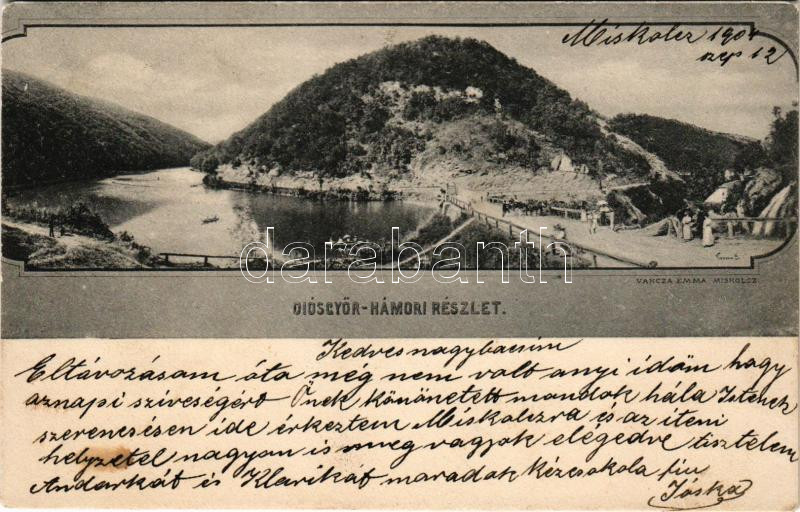 Miskolcz 1904
szep 12
darabanth.com
VANCZA EMMA MISKOLCZ.
DIÓSGYŐR-HÁMORI RÉSZLET.
Kedves nagybacsim
Eltávozásam óta még nem valt anyi idöm hagy
aznapi sziveségért Önek köszönetett mandok hála Istenek
szerencsésen ide érkeztem Miskolczra és az iteni
helyzetel nagyon is meg vagyok elégedve tisztelem
Andarkát és Klarikát maradok kézcsokola fiu
Jóska